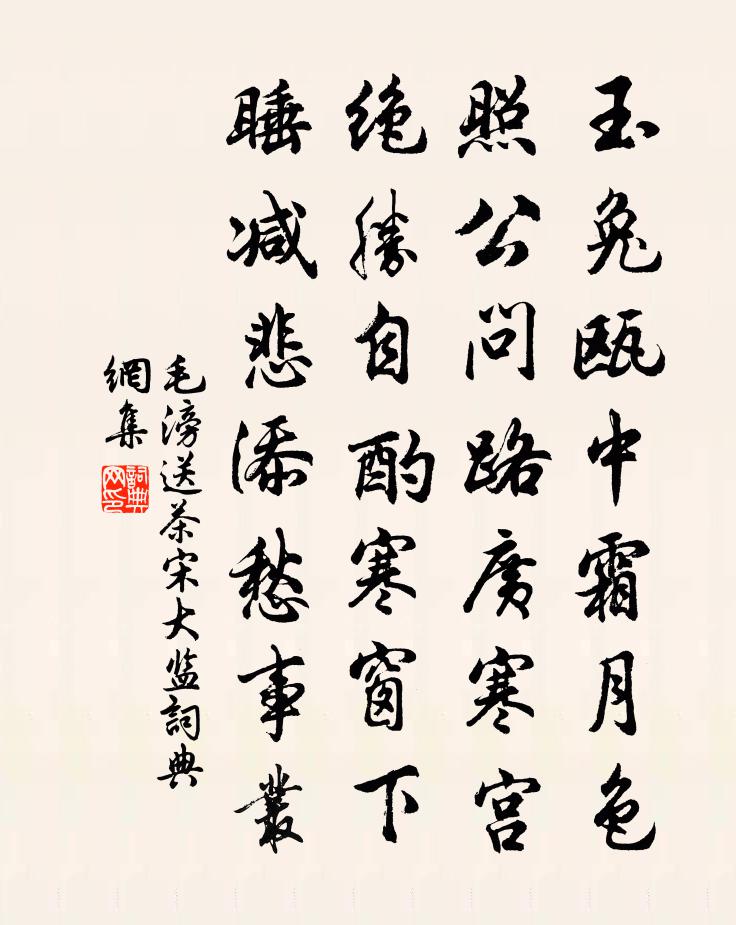 玉兔瓯中霜月色
照公问路廣寒宫
绝勝自酌寒窗下
睡减悲添愁事叢
毛滂送茶宋大监詞典
網集
詞典
网印